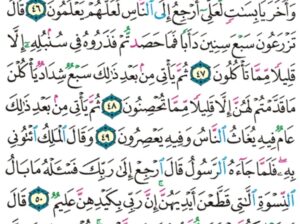 وَأُخَرَ يَابِسَٰتٍ لَّعَلِّىٓ أَرْجِعُ إِلَى ٱلنَّاسِ لَعَلَّهُمْ يَعْلَمُونَ ٤٦ قَالَ
تَزْرَعُونَ سَبْعَ سِنِينَ دَأَبًا فَمَا حَصَدتُّمْ فَذَرُوهُ فِى سُنۢبُلِهِۦٓ إِلَّا
قَلِيلًا مِّمَّا تَأْكُلُونَ ٤٧ ثُمَّ يَأْتِى مِنۢ بَعْدِ ذَٰلِكَ سَبْعٌ شِدَادٌ يَأْكُلْنَ
مَا قَدَّمْتُمْ لَهُنَّ إِلَّا قَلِيلًا مِّمَّا تُحْصِنُونَ ٤٨ ثُمَّ يَأْتِى مِنۢ بَعْدِ ذَٰلِكَ
عَامٌ فِيهِ يُغَاثُ ٱلنَّاسُ وَفِيهِ يَعْصِرُونَ ٤٩ وَقَالَ ٱلْمَلِكُ ٱئْتُونِى
بِهِۦ فَلَمَّا جَآءَهُ ٱلرَّسُولُ قَالَ ٱرْجِعْ إِلَىٰ رَبِّكَ فَسْـَٔلْهُ مَا بَالُ
ٱلنِّسْوَةِ ٱلَّٰتِى قَطَّعْنَ أَيْدِيَهُنَّ إِنَّ رَبِّى بِكَيْدِهِنَّ عَلِيمٌ ٥٠ قَالَ